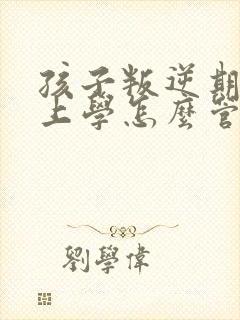 孩子叛逆期
上學怎麼管
劉學偉